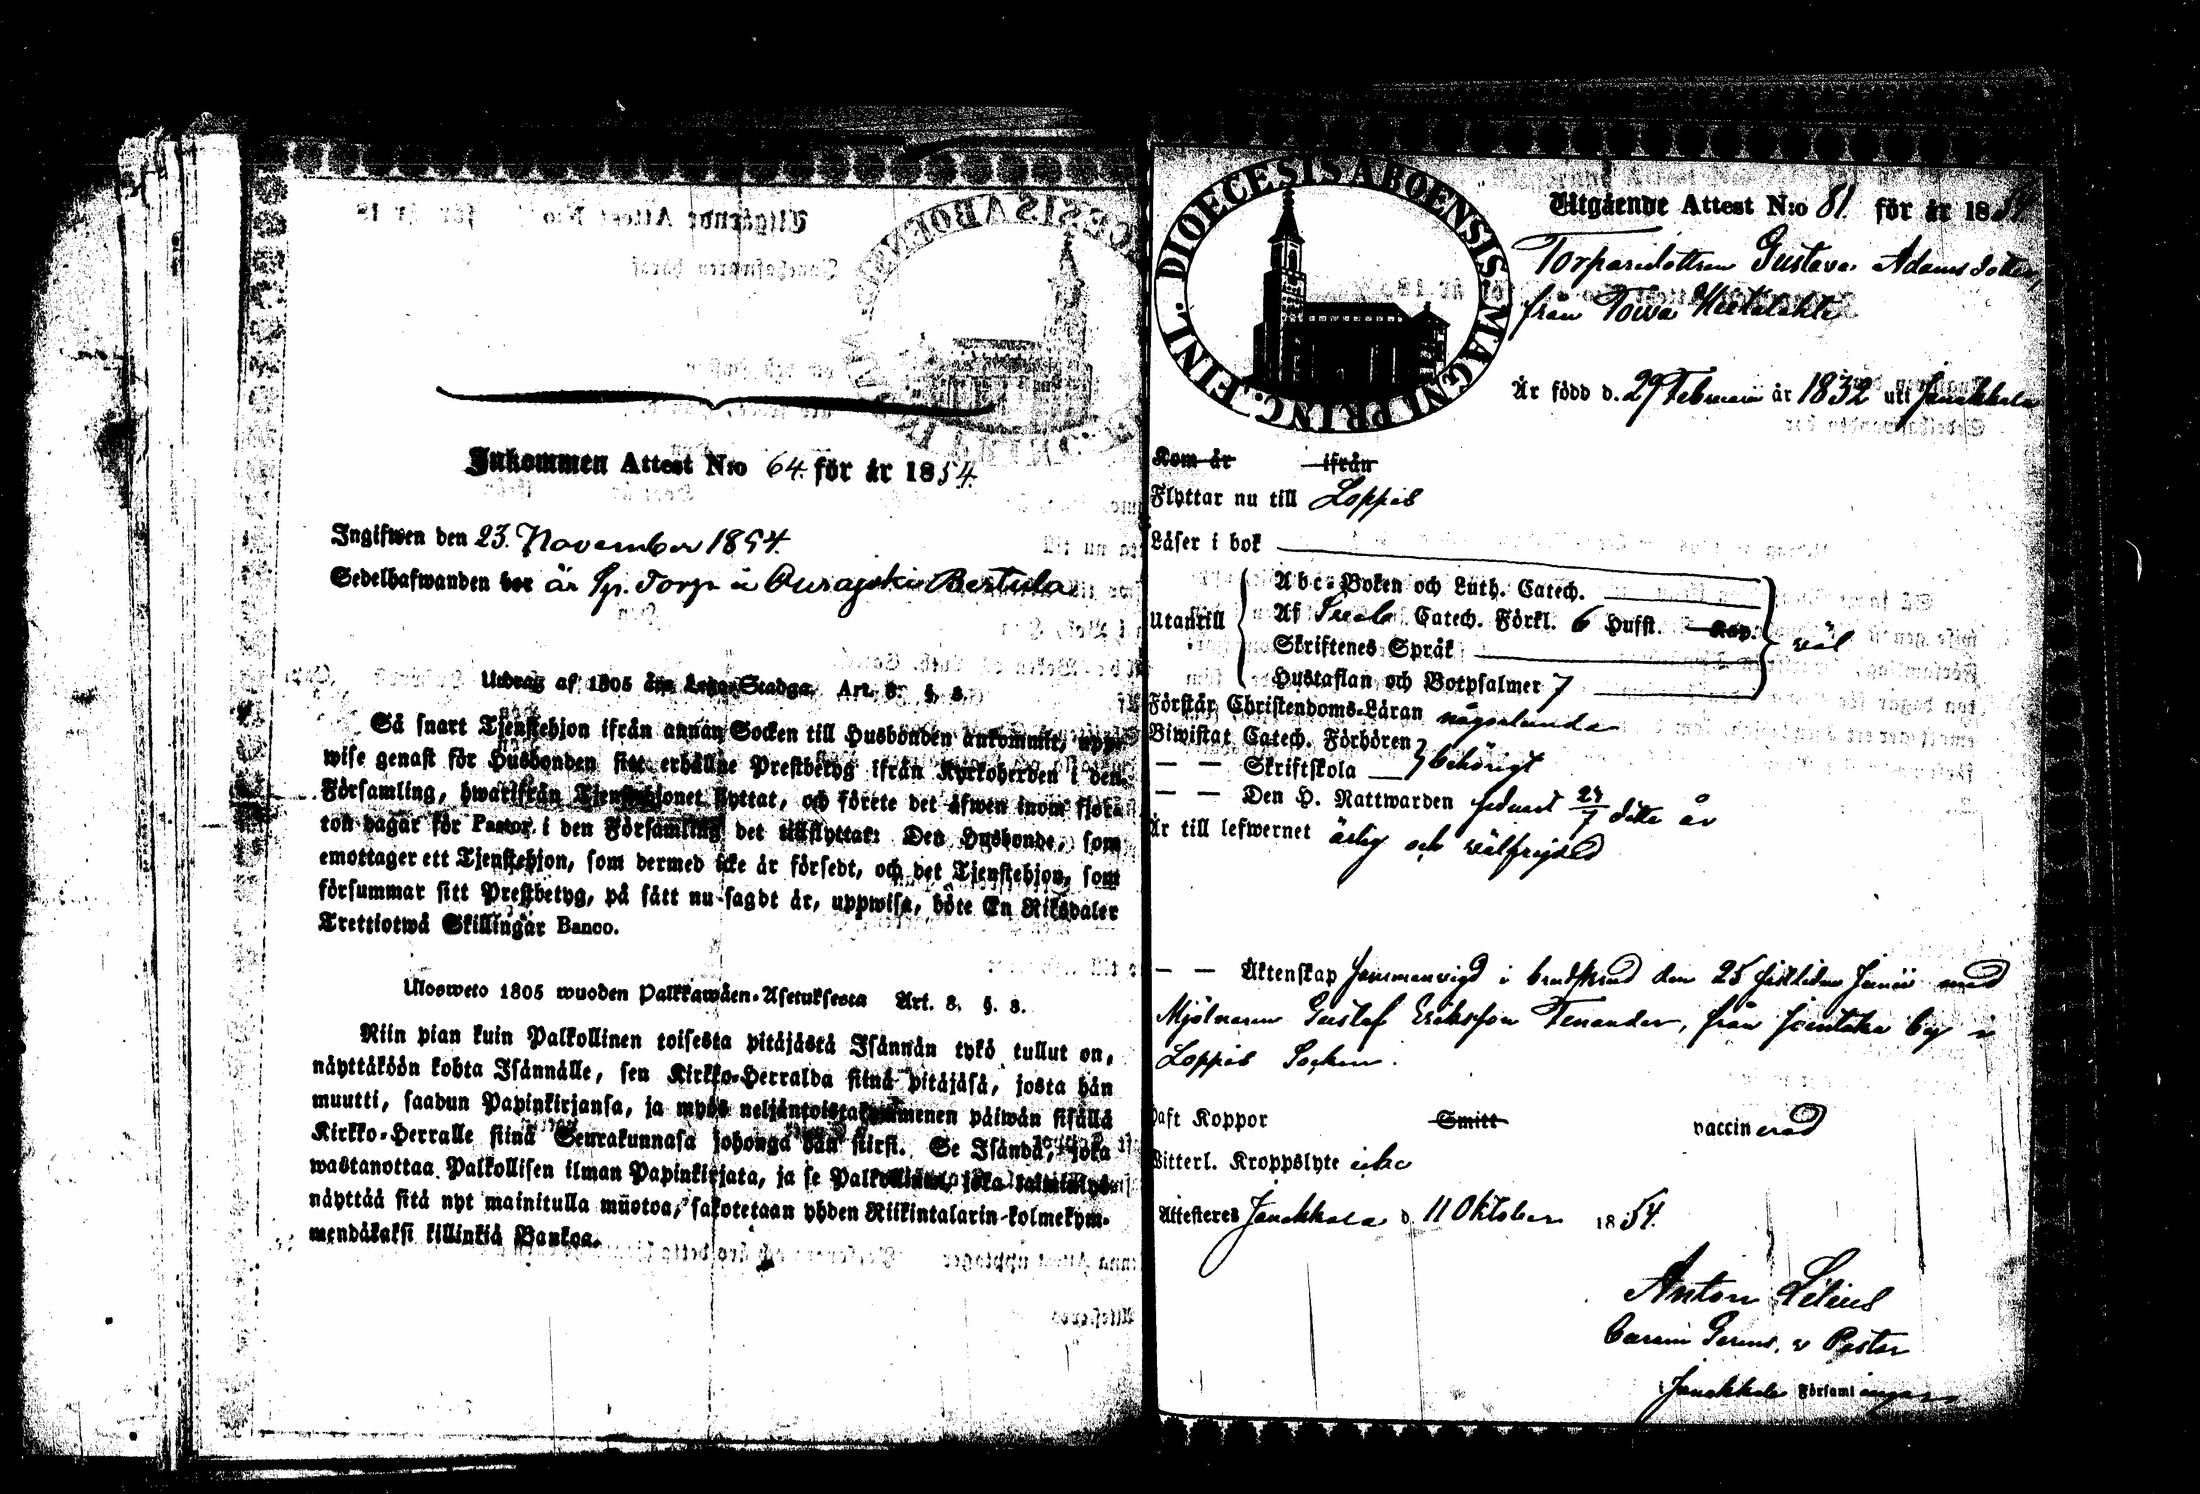 Inkommen Attest N:o 64. för år 1854.
Ingifwen den 23. November 1854.
Sedelhafwanden bor är Torp i Bertula
Utdrag af 1805 års Lego-Stadga, Art. 8. §. 8.
Så snart Tjenstehjon ifrån annan Socken till Husbonden ankommit, upp-
wise genast för Husbonden sitt erhållne Prestbetyg ifrån Kyrkoherden i den
Församling, hwarifrån Tjenstehjonet flyttat, och förete det äfwen inom fjor-
ton dagar för Pastor i den Församling det tillflyttat: Den Husbonde, som
emottager ett Tjenstehjon, som dermed icke är försedt, och det Tjenstehjon, som
försummar sitt Prestbetyg, på sätt nu sagdt är, uppwisa, böte En Riksdaler
Trettiotwå Skillingar Banco.
Ulosweto 1805 wuoden Palkkawäen-Asetuksesta Art. 8. §. 8.
Niin pian kuin Palkollinen toisesta pitäjästä Isännän tykö tullut on,
näyttäköön kohta Isännälle, sen Kirkko-Herralda siinä pitäjäsä, josta hän
muutti, saadun Papinkirjansa, ja myös neljäntoistakymmenen päiwän sisällä
Kirkko-Herralle siinä Seurakunnasa johonga hän siirsi. Se Isändä, joka
wastanottaa Palkollisen ilman Papinkirjata, ja se Palkollinen, joka
näyttää sitä nyt mainitulla muotoa, sakotetaan yhden Riikintalarin kolmekym-
mendäkaksi killinkiä Bankoa.
DIOECESIS ABOENSIS MAGNI PRINC. FINL.
Utgående Attest N:o 81 för år 1854
Torparedottren Gustava Adamsdotter,
från Towa
Är född d. 29 Februarii år 1832 uti Janakkala
Kom år ifrån
Flyttar nu till Loppis
Läser i bok
Abc-Boken och Luth. Catech.
Utantill Af Catech. Förkl. 6 Hufst. Kap. wäl
Skriftenes Språk
Hustaflan och Botpsalmer 7
Förstår Christendoms-Läran någorlunda
Biwistat Catech. Förhören behörigt
— — Skriftskola
— — Den H. Nattwarden senast 24/7 detta år
Är till lefwernet ärlig och wälfrejdad
— — Äktenskap sammanvigd i brudstud den 25 sistliden Junii med
Mjölnaren Gustaf Eriksson Tenander, från by i
Loppis Socken.
Haft Koppor Smitt vaccinerad
Witterl. Kroppslyte icke
Attesteres Janakkala d. 11 Oktober 1854.
Anton Lilius
v Pastor
i Janakkala Församlingar